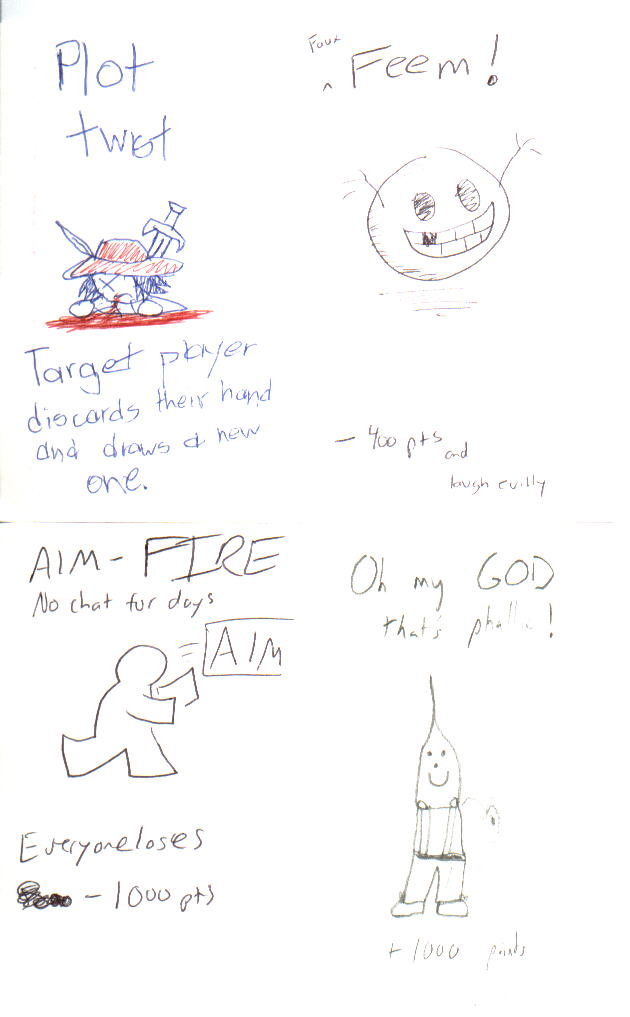 Plot
twist
Target player
discards their hand
and draws a new
one.
Faux
^ Feem!
- 400 pts
and
laugh evilly
AIM- FIRE
No chat for days
AIM
Everyone loses
- 1000 pts
Oh my GOD
that's phallic!
+ 1000 points